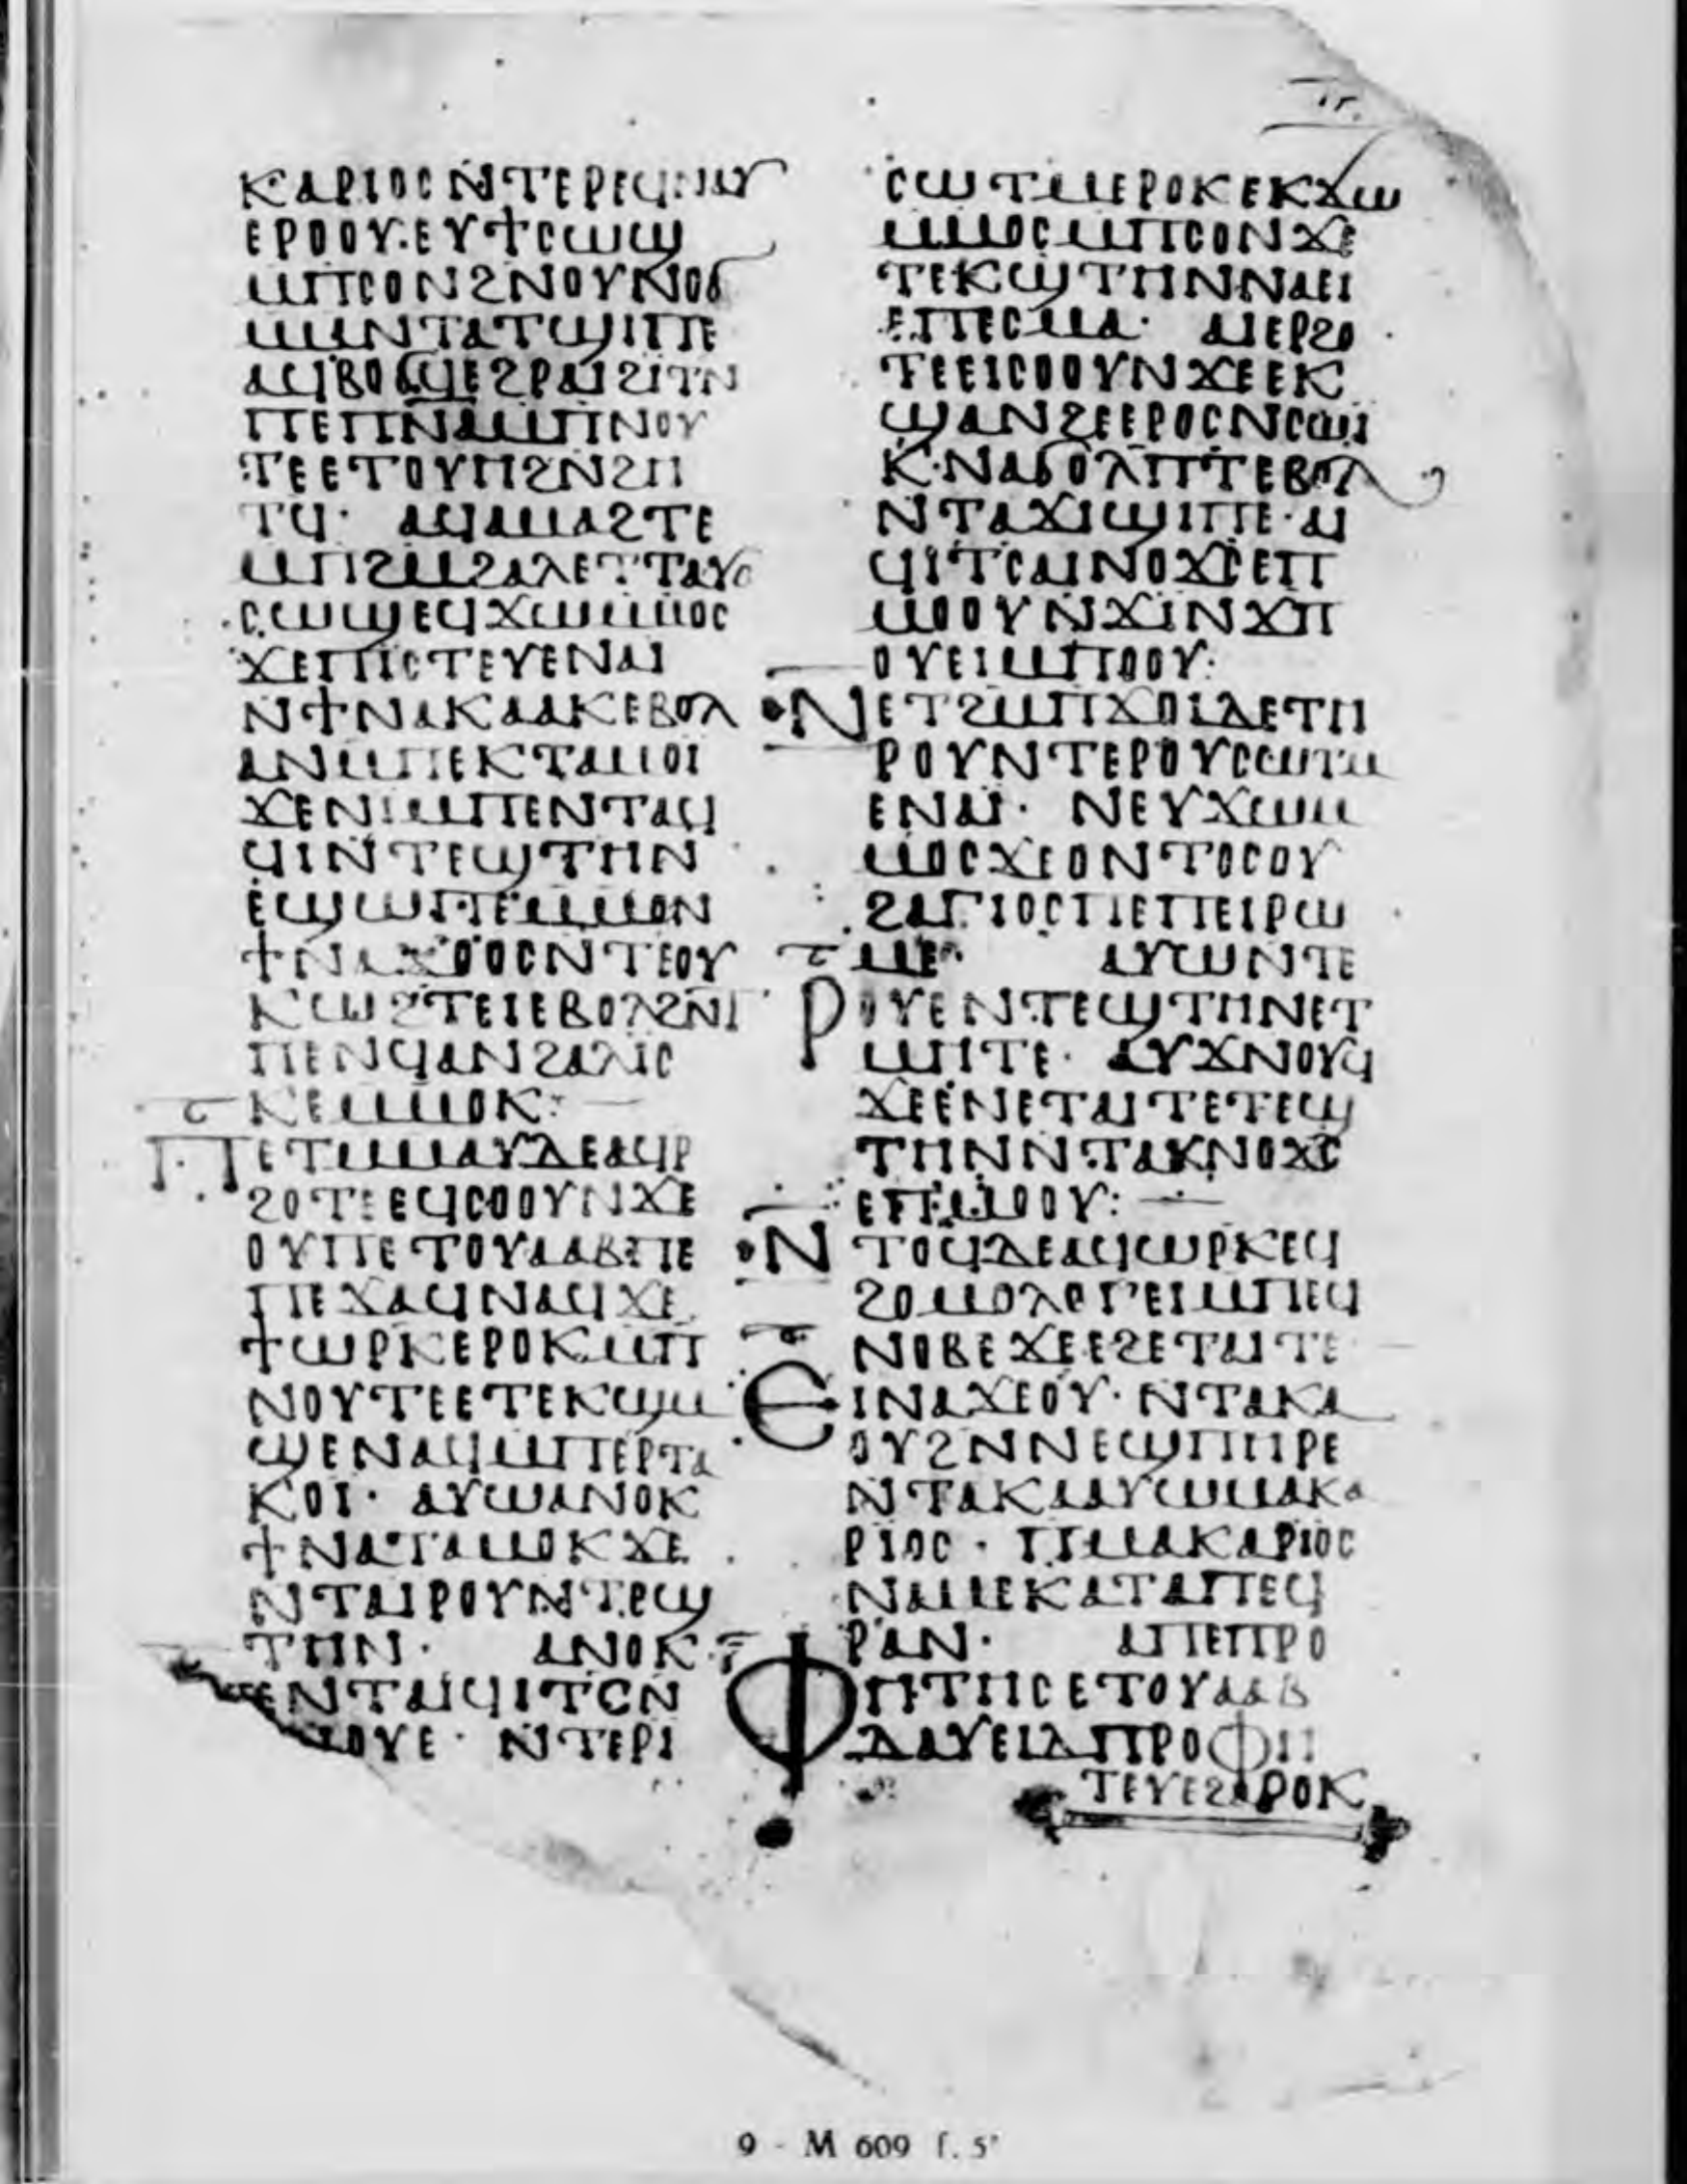 ⲕⲁⲣⲓⲟⲥⲛⲧⲉⲣⲉϥⲛⲁⲩ
ⲉⲣⲟⲟⲩ·ⲉⲩϯⲥⲱϣ
ⲙⲡⲥⲟⲛϩⲛⲟⲩⲛⲟϭ
ⲙⲙⲛⲧⲁⲧϣⲓⲡⲉ
ⲁϥⲃⲟϭϥⲉϩⲣⲁⲓϩⲓⲧⲛ
ⲡⲉⲡⲛⲁⲙⲡⲛⲟⲩ
ⲧⲉⲉⲧⲟⲩⲏϩⲛϩⲏ
ⲧϥ· ⲁϥⲁⲙⲁϩⲧⲉ
ⲙⲡϩⲙϩⲁⲗⲉⲧⲧⲁⲩⲟ
ⲥⲱϣⲉϥϫⲱⲙⲙⲟⲥ
ϫⲉⲡⲓⲥⲧⲉⲩⲉⲛⲁⲓ
ⲛϯⲛⲁⲕⲁⲁⲕⲉⲃⲟⲗ
ⲁⲛⲙⲡⲉⲕⲧⲁⲙⲟⲓ
ϫⲉⲛⲓⲙⲡⲉⲛⲧⲁϥ
ϥⲓⲛⲧⲉϣⲧⲏⲛ
ⲉϣⲱⲡⲉⲙⲙⲟⲛ
ϯⲛⲁϫⲟⲟⲥⲛⲧⲉⲟⲩ
ⲕⲱϩⲧⲉⲓⲉⲃⲟⲗϩⲛⲧ
ⲡⲉⲛϥⲁⲛϩⲁⲗⲓⲥ
ⲕⲉⲙⲙⲟⲕ:
ⲡⲉⲧⲙⲙⲁⲩⲇⲉⲁϥⲣ
ϩⲟⲧⲉⲉϥⲥⲟⲟⲩⲛϫⲉ
ⲟⲩⲡⲉⲧⲟⲩⲁⲁⲃⲡⲉ
ⲡⲉϫⲁϥⲛⲁϥϫⲉ
ϯⲱⲣⲕⲉⲣⲟⲕⲙⲡ
ⲛⲟⲩⲧⲉⲉⲧⲉⲕϣⲙ
ϣⲉⲛⲁϥⲙⲡⲉⲣⲧⲁ
ⲕⲟⲓ· ⲁⲩⲱⲁⲛⲟⲕ
ϯⲛⲁⲧⲁⲙⲟⲕϫⲉ
ⲛⲧⲁⲓⲣⲟⲩⲛⲧⲉϣ
ⲧⲏⲛ· ⲁⲛⲟⲕ
ⲡⲉⲛⲧⲁⲓϥⲓⲧⲥⲛ
ϫⲓⲟⲩⲉ· ⲛⲧⲉⲣⲓ
ⲥⲱⲧⲙⲉⲣⲟⲕⲉⲕϫⲱ
ⲙⲙⲟⲥⲙⲡⲥⲟⲛϫⲉ
ⲧⲉⲕϣⲧⲏⲛⲛⲁⲉⲓ
ⲉⲡⲉⲥⲙⲁ· ⲁⲓⲉⲣϩⲟ
ⲧⲉⲉⲓⲥⲟⲟⲩⲛϫⲉⲉⲕ
ϣⲁⲛϩⲉⲉⲣⲟⲥⲛⲥⲱⲓ
ⲕ·ⲛⲁϭⲟⲗⲡⲧⲉⲃⲟⲗ
ⲛⲧⲁϫⲓϣⲓⲡⲉ·ⲁⲓ
ϥⲓⲧⲥⲁⲓⲛⲟϫⲥⲉⲡ
ⲙⲟⲟⲩⲛϫⲓⲛϫⲡ
ⲟⲩⲉⲓⲙⲡⲟⲟⲩ:
ⲛⲉⲧϩⲙⲡϫⲟⲓⲇⲉⲧⲏ
ⲣⲟⲩⲛⲧⲉⲣⲟⲩⲥⲱⲧⲙ
ⲉⲛⲁⲓ· ⲛⲉⲩϫⲱⲙ
ⲙⲟⲥϫⲉⲟⲛⲧⲟⲥⲟⲩ
ϩⲁⲅⲓⲟⲥⲡⲉⲡⲉⲓⲣⲱ
ⲙⲉ· ⲁⲩⲱⲛⲧⲉ
ⲣⲟⲩⲉⲛⲧⲉϣⲧⲏⲛⲉⲧ
ⲙⲏⲧⲉ· ⲁⲩϫⲛⲟⲩϥ
ϫⲉⲉⲛⲉⲧⲁⲓⲧⲉⲧⲉϣ
ⲧⲏⲛⲛⲧⲁⲕⲛⲟϫⲥ
ⲉⲡⲙⲟⲟⲩ:
ⲛⲧⲟϥⲇⲉⲁϥⲱⲣⲕⲉϥ
ϩⲟⲙⲟⲗⲟⲅⲉⲓⲙⲡⲉϥ
ⲛⲟⲃⲉϫⲉⲉϩⲉⲧⲁⲓⲧⲉ
ⲉⲓⲛⲁϫⲉⲟⲩ· ⲛⲧⲁⲕⲁ
ⲟⲩϩⲛⲛⲉϣⲡⲏⲣⲉ
ⲛⲧⲁⲕⲁⲁⲩⲱⲙⲁⲕⲁ
ⲣⲓⲟⲥ· ⲡⲙⲁⲕⲁⲣⲓⲟⲥ
ⲛⲁⲙⲉⲕⲁⲧⲁⲡⲉϥ
ⲣⲁⲛ· ⲁⲡⲉⲡⲣⲟ
ⲫⲏⲧⲏⲥⲉⲧⲟⲩⲁⲁⲃ
ⲇⲁⲩⲉⲓⲇⲡⲣⲟⲫⲏ
ⲧⲉⲩⲉϩⲁⲣⲟⲕ
9 - M 609 f. 5ʳ